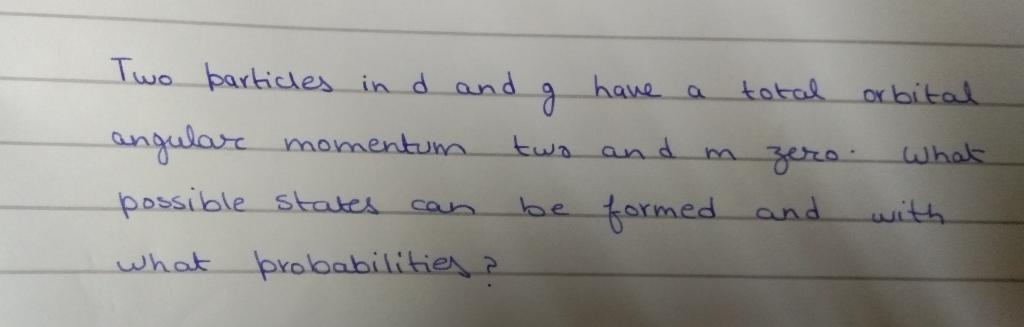 Two particles in d and g have a total orbital
angular momentum two and m zero. What
possible states can be formed and with
what probabilities?